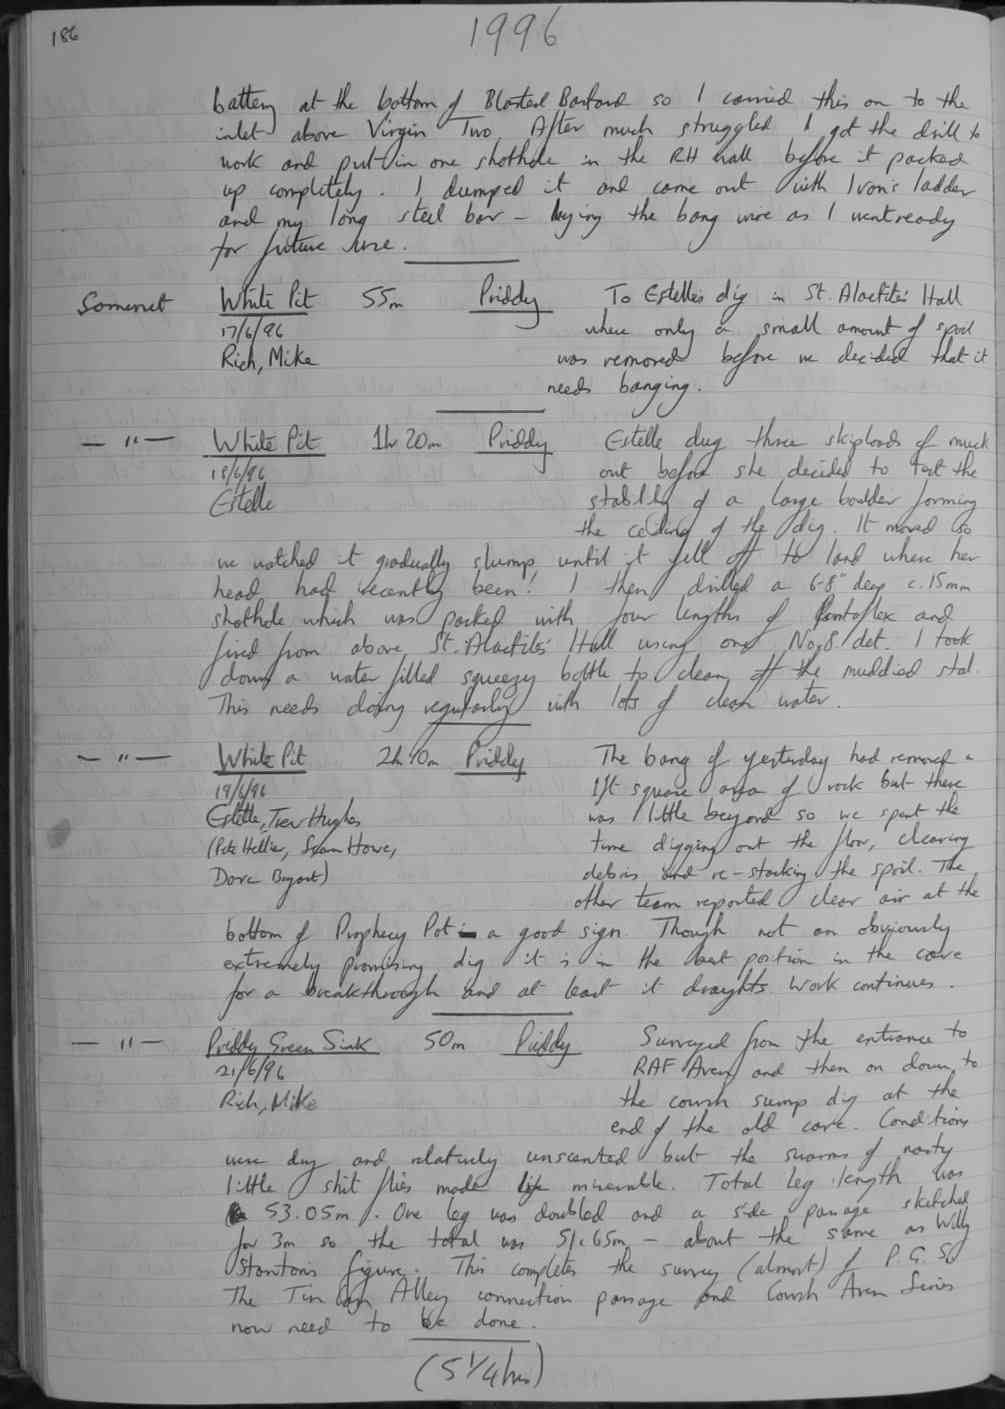 186
1996
battery at the bottom of Blasted Bastard so I carried this on to the
inlet above Virgin Two. After much struggled I got the drill to
work and put in one shothole in the RH wall before it packed
up completely. I dumped it and came out with Ivan's ladder
and my long steel bar - laying the bang wire as I went ready
for future use.
Somerset White Pit 55m Priddy To Estelle's dig in St. Alactites' Hall
17/6/96 where only a small amount of spoil
Rich, Mike was removed before we decided that it
needs banging.
— " — White Pit 1hr 20m Priddy Estelle dug three skiploads of muck
18/6/96 out before she decided to test the
Estelle stability of a large boulder forming
the ceiling of the dig. It moved so
we watched it gradually slump until it fell off to land where her
head had recently been! I then drilled a 6-8" deep c.15mm
shothole which was packed with four lengths of Pentaflex and
fired from above St. Alactites' Hall using one No.8 det. I took
down a water filled squeezy bottle to clean off the muddied stal.
This needs doing regularly with lots of clean water.
— " — White Pit 2h 40m Priddy The bang of yesterday had removed a
19/6/96 1ft square area of rock but there
Estelle, Trev Hughes was little beyond so we spent the
(Pete Hellier, Howe, time digging out the floor, clearing
Dave ) debris and re-stacking the spoil. The
other team reported clear air at the
bottom of Prophecy Pot - a good sign. Though not an obviously
extremely promising dig it is in the best position in the cave
for a breakthrough and at least it draughts. Work continues.
— " — Priddy Green Sink 50m Priddy Surveyed from the entrance to
21/6/96 RAF Aven and then on down to
Rich, Mike the cowsh sump dig at the
end of the old cave. Conditions
were dry and relatively unscented but the swarms of nasty
little shit flies made life miserable. Total leg length was
53.05m. One leg was doubled and a side passage sketched
for 3m so the total was 51.65m - about the same as Willy
Stanton's figure. This completes the survey (almost) of P.G.S.
The Tin Can Alley connection passage and Cowsh Aven Series
now need to be done.
(5 1/4 hrs)